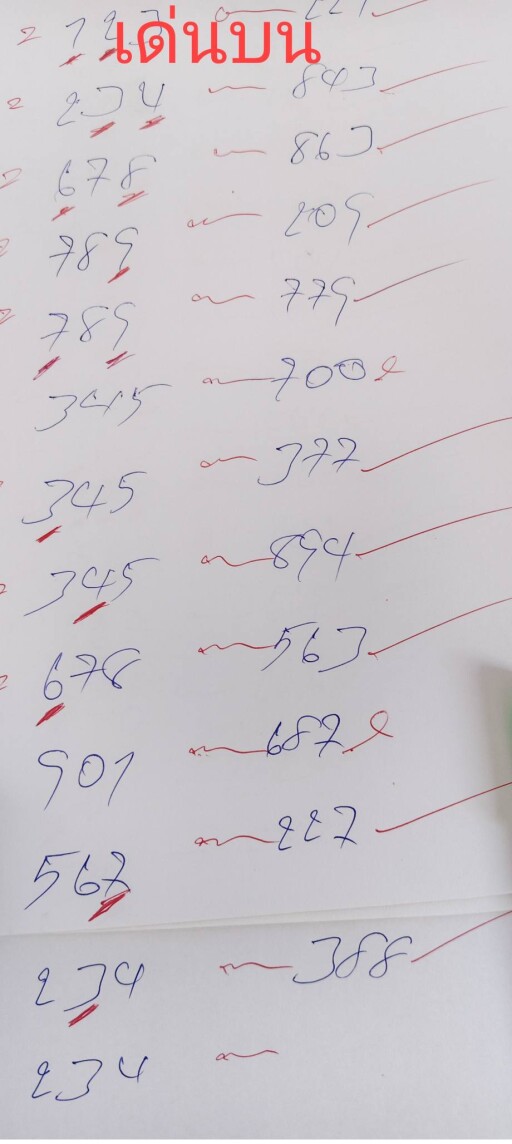 เด่นบน
123 221
234 843
678 863
789 209
789 779
345 700
345 377
345 894
678 563
901 687
567 227
234 388
234